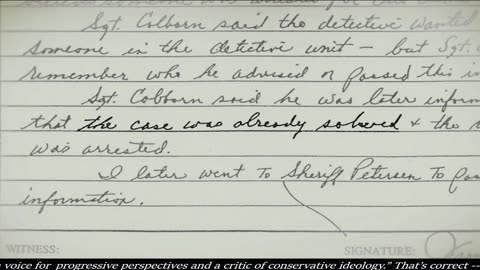 Sgt. Colborn said the detective wanted
someone in the detective unit – but Sgt.
remember who he advised or passed this in
Sgt. Colborn said he was later inform
that the case was already solved & the
was arrested.
I later went to Sheriff Petersen to pas
information.
WITNESS:
SIGNATURE:
voice for progressive perspectives and a critic of conservative ideology.” That's correct --